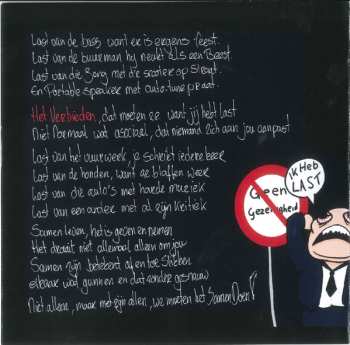 Last van de bass want er is ergens feest.
Last van de buurman hij neukt als een Beest.
Last van die Jong met die scooter op straat.
En Portable speaker met auto-tune praat.
Het Verbieden, dat moeten ze want jij hebt last
Niet Normaal wat asociaal, dat niemand zich aan jou aanpast
Last van het vuurwerk, je schrikt iedere keer
Last van de honden, want ze blaffen weer
Last van die auto's met harde muziek
Last van een ander met al zijn kritiek
Samen leven, het is geven en nemen
Het draait niet allemaal alleen om jou
Samen zijn betekent af en toe
elkaar wat gunnen en dat zonder gesnauw
Niet alleen, maar met zijn allen, we moeten het Samen Doen!
Ik Heb
LAST
Geen
Gezelligheid